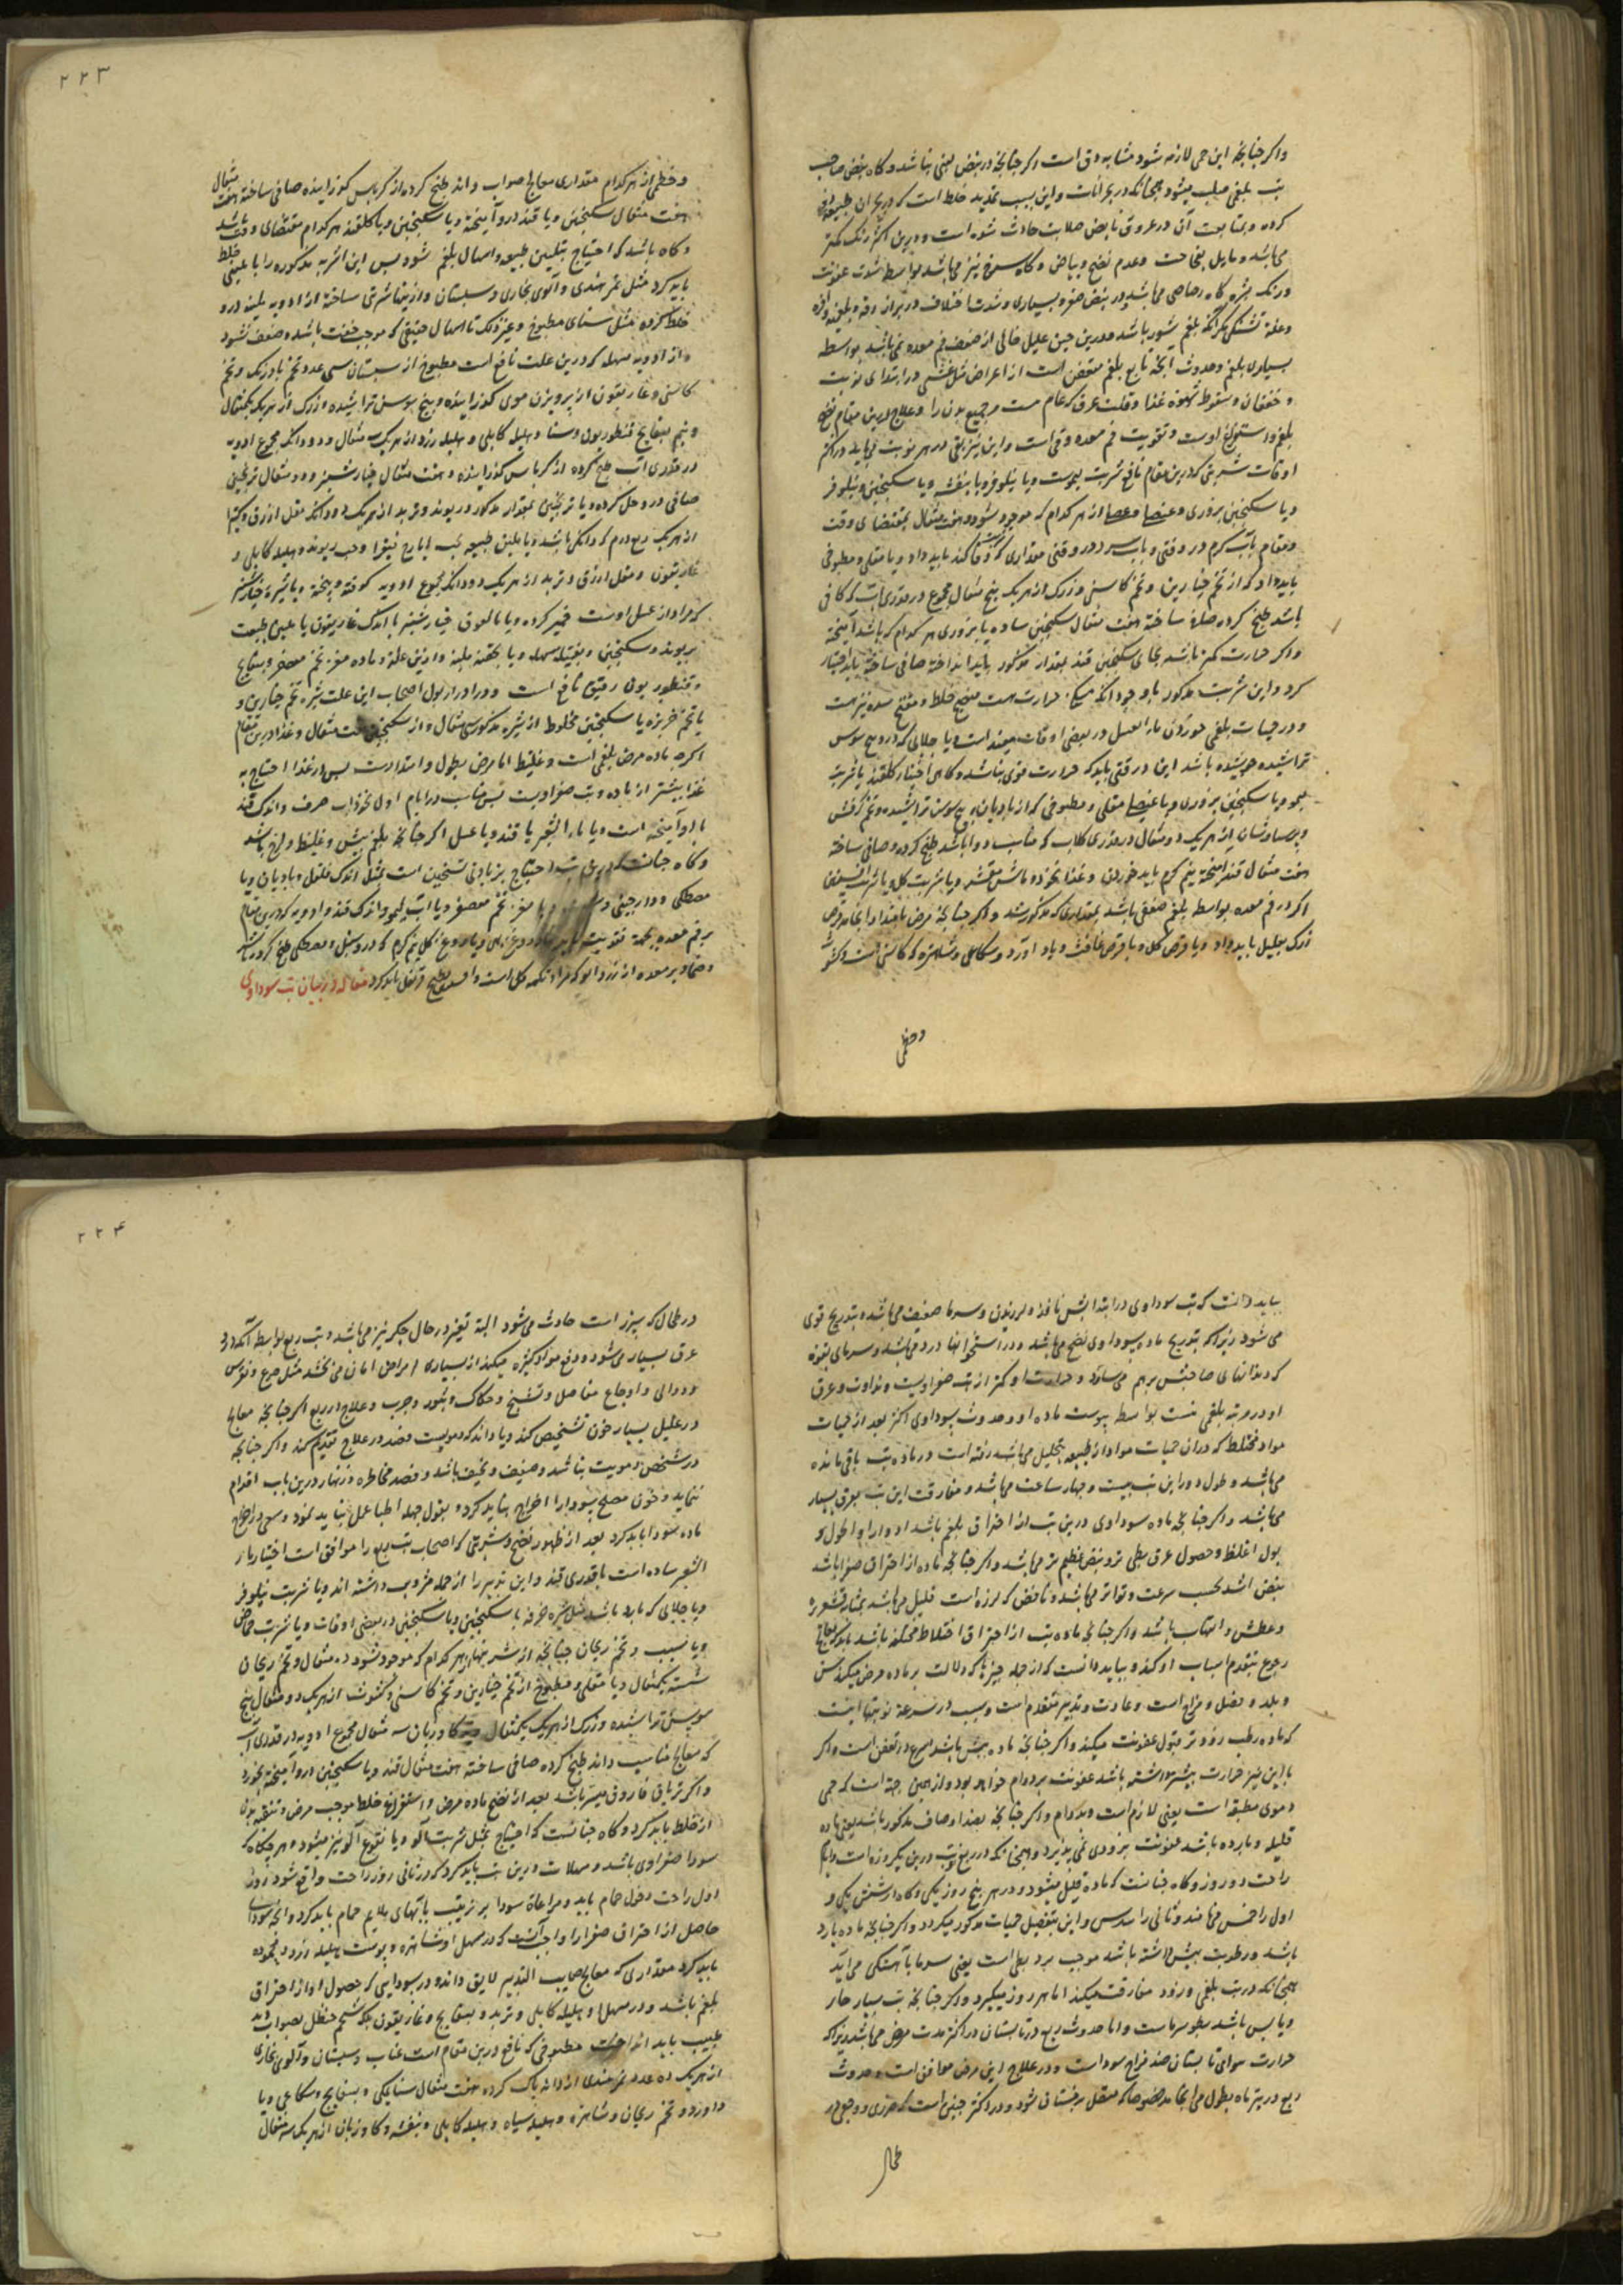 واکر چنانچه این حمی لازمه شود مشابه دق است اکر چنانچه در نبض لینی نباشد و کاه نبض صاحب
تب بلغمی صلب میشود همچنانکه در بحرانات و این بسبب تمدید خلط است که در بحران طبیعة
کرده و بمتابعت آن در عروق نابض صلابت حادث شده است و درین اکثر رنک کمتر
می باشد و مایل بفجاجت و عدم نضج و بیاض و کاه سرخ نیز می باشد بواسطه شدت عفونت
ورنک بشره کاه رصاصی می باشد و در نبض صغر و بسیاری و شدت اختلاف در براز رقه و بلغمیه
وقلة تشنکی مکر آنکه بلغم شور باشد و درین حین علیل خالی از ضعف فم معده نمی باشد بواسطه
بسیاری بلغم و حدوث ابخره تابع بلغم متعفن است از اعراض مثل غشی در ابتدای نوبت
و خفقان و سقوط شهوة غذا و قلت عرق که عام است مر جمیع بدن را و علاج درین مقام نضج
بلغم و استفراغ اوست و تقویت فم معده و قی است و این نیز بقی در هر نوبت می باید در اکثر
اوقات شربتی که درین مقام نافع شربت لیموست و یا نیلوفر و یا بنفشه و یا سکنجبین و نیلوفر
و یا سکنجبین بزوری و عنصلی از هر کدام که موجود شود هفت مثقال بمقتضای وقت
و مقام بآب کرم در وقتی و بآب سرد در وقتی مقداری که وفا کند باید داد و یا مغلی و مطبوخی
باید داد که از تخم خیارین و تخم کاسنی و زرک از هر یک پنج مثقال مجموع در مقداری آب که کافی
باشد طبخ کرده صاف ساخته هفت مثقال سکنجبین ساده یا بزوری هر کدام که باشد آمیخته
واکر حرارت کمتر باشد بجای سکنجبین قند بمقدار مذکور باید انداخته صافی ساخته باید اختیار
کرد و این شربت مذکور باوجود آنکه مسکن حرارت هست منضج خلط و مفتح سده نیز هست
و در حمیات بلغمی خوردن ماء العسل در بعضی اوقات مفید است و یا جلابی که در و بیخ سوس
تراشیده جوشیده باشد این در وقتی باید که حرارت قوی نباشد و کاهی اختیار کلقند یا شربت
لیمو و یا سکنجبین بزوری و یا عنصلی مغلی و مطبوخی که از بادیان و بیخ سوس تراشیده و تخم کرفس
و پرسیاوشان از هر یک دو مثقال در مقداری کلاب که مناسب دوا باشد طبخ کرده و صافی ساخته
هفت مثقال قند آمیخته نیم کرم باید خوردن و غذا نخوده ماش مقشر و یا شربت کل و یا شربت افسنتین
اکر در فم معده بواسطه بلغم ضعفی باشد بمقداری که مذکور شد و اکر چنانچه مرض بامتداد انجامد قرص
زرک بعلیل باید داد و یا قرص کل و یا قرص غافث و یاد آورد و شکاعی و شاهتره که کاسنی است و کشوث
وخطمی
۲۲۳
وخطمی از هر کدام مقداری معالج صواب داند طبخ کرده از کرباس کوزانیده صافی ساخته هفت مثقال
هفت مثقال سکنجبین و یا قند در و آمیخته و یا سکنجبین و یا کلقند هر کدام مقتضای وقت باشد
و کاه باشد که احتیاج بتلیین طبیعه و اسهال بلغم شود پس این اشربه مذکوره را با ملیینی خلط
باید کرد مثل تمر هندی و آلوی بخاری و سبستان و از ینها شربتی ساخته از ادویه ملینه در و
خلط کرده مثل سنای مطبوخ و غیر ذلک تا اسهال حقیقی که موجب خفت باشد و ضعف نشود
و از ادویه مسهله که درین علت نافع است مطبوخ از سبستان سی عدد و تخم بادرنک و تخم
کاسنی و غاریقون از پرویزن موی کوزانیده و بیخ سوس تراشیده و زرک از هر یک یکمثقال
و نیم بسفایج قنطوریون و سنا و هلیله کابلی و هلیله زرد از هر یک مثقال و دو دانک مجموع ادویه
در مقداری آب طبخ کرده از کرباس کوزانیده و هفت مثقال خیار شنبر و دو مثقال ترنجبین
صافی در و حل کرده و یا ترنجبین بمقدار مذکور و ریوند و تربد از هر یک دو دانک مقل ازرق و کتیرا
از هر یک ربع درم که دانکی باشد و یا تلیین طبیعه بحب ایارج فیقرا و حب ریوند و هلیله کابلی و
غاریقون و مقل ازرق و تربد از هر یک دو دانک مجموع ادویه کوفته و بیخته و با شیره خیار شنبر
که مراد از عسل اوست خمیر کرده و یا بالعوق خیار شنبر با اندک غاریقون یا ملین طبیعت
بریوند و سکنجبین و بفتیله مسهله و یا بحقنه ملینه و ازین علة و ماده مغز تخم معصفر و بسفایج
و قنطوریون رقیق نافع است و در ادرار بول اصحاب این علت شیره تخم خیارین و
یا تخم خربزه یا سکنجبین مخلوط از شیره مذکور سی مثقال و از سکنجبین هفت مثقال و غذا درین مقام
اکرچه ماده مرض بلغمی است و غلیظ اما مرض بطول و امتدادست پس در غذا احتیاج به
غذا بیشتر از ماده و تب صفراویست پس مناسب در ایام اول نخوذاب صرف و اندک قند
با او آمیخته است و یا ماء الشعیر با قند و یا عسل اکر چنانچه بلغم بیش و غلیظ و لزج باشد
و کاه چنانست که درین تب احتیاج بزیادتی تسخین است بمثل اندک فلفل و بادیان و یا
مصطکی و دار چینی و یا مغز تخم معصفر و یا آب لیمو و اندک قند و ادویه که درین مقام
بر فم معده بجهة تقویت و روغن کل نیم کرم که در و سنبل و مصطکی طبخ کرده باشند
و ضماد بر معده از زرد آلو که مراد تکمه کل است و افسنتین قرنفل باید کرد مقاله در بیان تب سوداوی
بباید دانست که تب سوداوی در ابتدا بش نافذ و لرزیدن و سرما ضعیف می باشد و بتدریج قوی
می شود زیراکه بتدریج ماده سوداوی نضج می باشد و در استخوانها درد می باشد و سرمای بقوة
که دندانهای صاحبش برهم می ساید و حرارت او کمتر از تب صفراویست و نداوت و عرق
او در مرتبه بلغمی نیست بواسطه یبوست ماده او و حدوث سوداوی اکثر بعد از حمیات
مواد مختلط که در آن حمیات مواد از طبیعه بتحلیل می باشد رفته است و ماده تب باقی مانده
می باشد و طول دور این تب بیست و چهار ساعت می باشد و مفارقت این تب بعرق بسیار
می باشد و اکر چنانچه ماده سوداوی درین تب از احتراق بلغم باشد ادوار او اطول و
بول اغلظ و حصول عرق بطی تر و نبض عظیم تر می باشد و اکر چنانچه ماده از احتراق صفرا باشد
نبض اشد بحسب سرعت و تواتر می باشد و نافض که لرزه است قلیل می باشد بمثابه قشعریره
و عطش و التهاب باشد و اکر چنانچه ماده تب از احتراق اخلاط مختلفه باشد باید که معالج
رجوع بتقدم اسباب او کند و بباید دانست که از جمله چیزها که دلالت بر ماده مرض میکند سن
و بلد و فصل و مزاج است و عادت و تدبیر متقدم است و سبب در سرعة نوبتها اینست
که ماده رطب زودتر قبول عفونت میکند و اکر چنانچه ماده بیش باشد اسرع در تعفن است و اکر
با این نیز حرارت بیشتر داشته باشد عفونت بر دوام خواهد بود و از همین جهة است که حمی
دموی مطبقه است یعنی لازم است و بدوام و اکر چنانچه بضد اوصاف مذکور باشد یعنی ماده
قلیله و بارده باشد عفونت بزودی نمی پذیرد و همچنانکه در ربع نوبت درین یکروزه است و ایام
راحت دو روز و کاه چنانست که ماده قلیل میشود و در هر پنج روز یکی و کاه در شش یکی و
اول را خمس میخوانند و ثانی را سدس و این بتفصیل حمیات مذکور میکردد و اکر چنانچه ماده بارد
باشد و رطوبت بیش داشته باشد موجب برد بطی است یعنی سرما باهستکی می آید
همچنانکه در تب بلغمی و زود مفارقت میکند اما هر روز میکیرد و اکر چنانچه تب بسیار حار
و یابس باشد بطو سرماست و اما حدوث ربع در تابستان در اکثر مدت مرض می باشد زیراکه
حرارت هوای تابستان ضد مزاج سوداست و در علاج این مرض معاون است و حدوث
ربع در تیر ماه بطول می انجامد خصوصا که متصل بزمستان شود و در اکثر چنین است که ضرری و وجعی در
طحال
۲۲۴
در طحال که سپرز است حادث می شود البته تغیر در حال جکر نیز می باشد و تب ربع بواسطه آنکه در
عرق بسیار می شود و دفع مواد کثیره میکند از بسیاری امراض امان می بخشد مثل صرع و نقرس
و دوالی و اوجاع مفاصل و تشنج و حکاک و بثور و جرب و علاج در ربع اکر چنانچه معالج
در علیل بسیار خون تشخیص کند و یا داند که دمویست فصد در علاج تقدیم کند و اکر چنانچه
در شخص دمویت نباشد و ضعیف و نحیف باشد و فصد مخاطره و زنهار درین باب اقدام
ننماید و خون مصلح سودا را اخراج نباید کرد و بقول جهله اطبا عمل نباید نمود و سعی در اخراج
ماده سودا باید کرد بعد از ظهور نضج و شربتی که اصحاب تب ربع را موافق است اختیار ماء
الشعیر ساده است با قدری قند و این تدبیر را از جمله ضروب داشته اند و یا شربت نیلوفر
و یا جلابی که بارد باشد مثل شیره خرفه با سکنجبین و یا سکنجبین در بعضی اوقات و یا شربت حماض
و یا سیب و تخم ریحان چنانچه از شربتها از هر کدام که موجود شود ده مثقال و تخم ریحان
شسته یکمثقال و یا مغلی و مطبوخ از تخم خیارین و تخم کاسنی و کشوث از هر یک دو مثقال بیخ
سوس تراشیده و زرک از هر یک یکمثقال و کاو زبان سه مثقال مجموع ادویه در قدری آب
که معالج مناسب داند طبخ کرده صافی ساخته هفت مثقال قند و یا سکنجبین در و آمیخته بخورد
و اکر تریاق فاروق میسر باشد بعد از نضج ماده مرض و استفراغ خلط موجب مرض و تنقیه بدن
از خلط باید کرد و کاه چنانست که احتیاج بمثل شربت آلو و یا نقوع آلو نیز میشود و هر چکاه که
سودا صفراوی باشد و مسهلات درین تب باید کرد که در ثانی روز راحت واقع شود و روز
اول راحت دخول حمام باید و مراعاة سودا بر ترتیب باآبهای ملایم حمام باید کرد و آنچه سودای
حاصل از احتراق صفرا را واجب آنست که در مسهل او شاهتره و پوست هلیله زرد و محموده
باید کرد مقداری که معالج صایب التدبیر لایق داند و در سودایی که حصول او از احتراق
بلغم باشد و در مسهل او هلیله کابلی و تربد و بسفایج و غاریقون بلکه شحم حنظل بصواب دید
طبیب باید انداخت مطبوخی که نافع درین مقام است عناب و سبستان و آلوی بخاری
از هر یک ده عدد تمر هندی از دانه پاک کرده هفت مثقال سنا مکی و بسفایج و شکاعی و یا
داورد و تخم ریحان و شاهتره و هلیله سیاه و هلیله کابلی و بنفشه و کاو زبان از هر یک سه مثقال